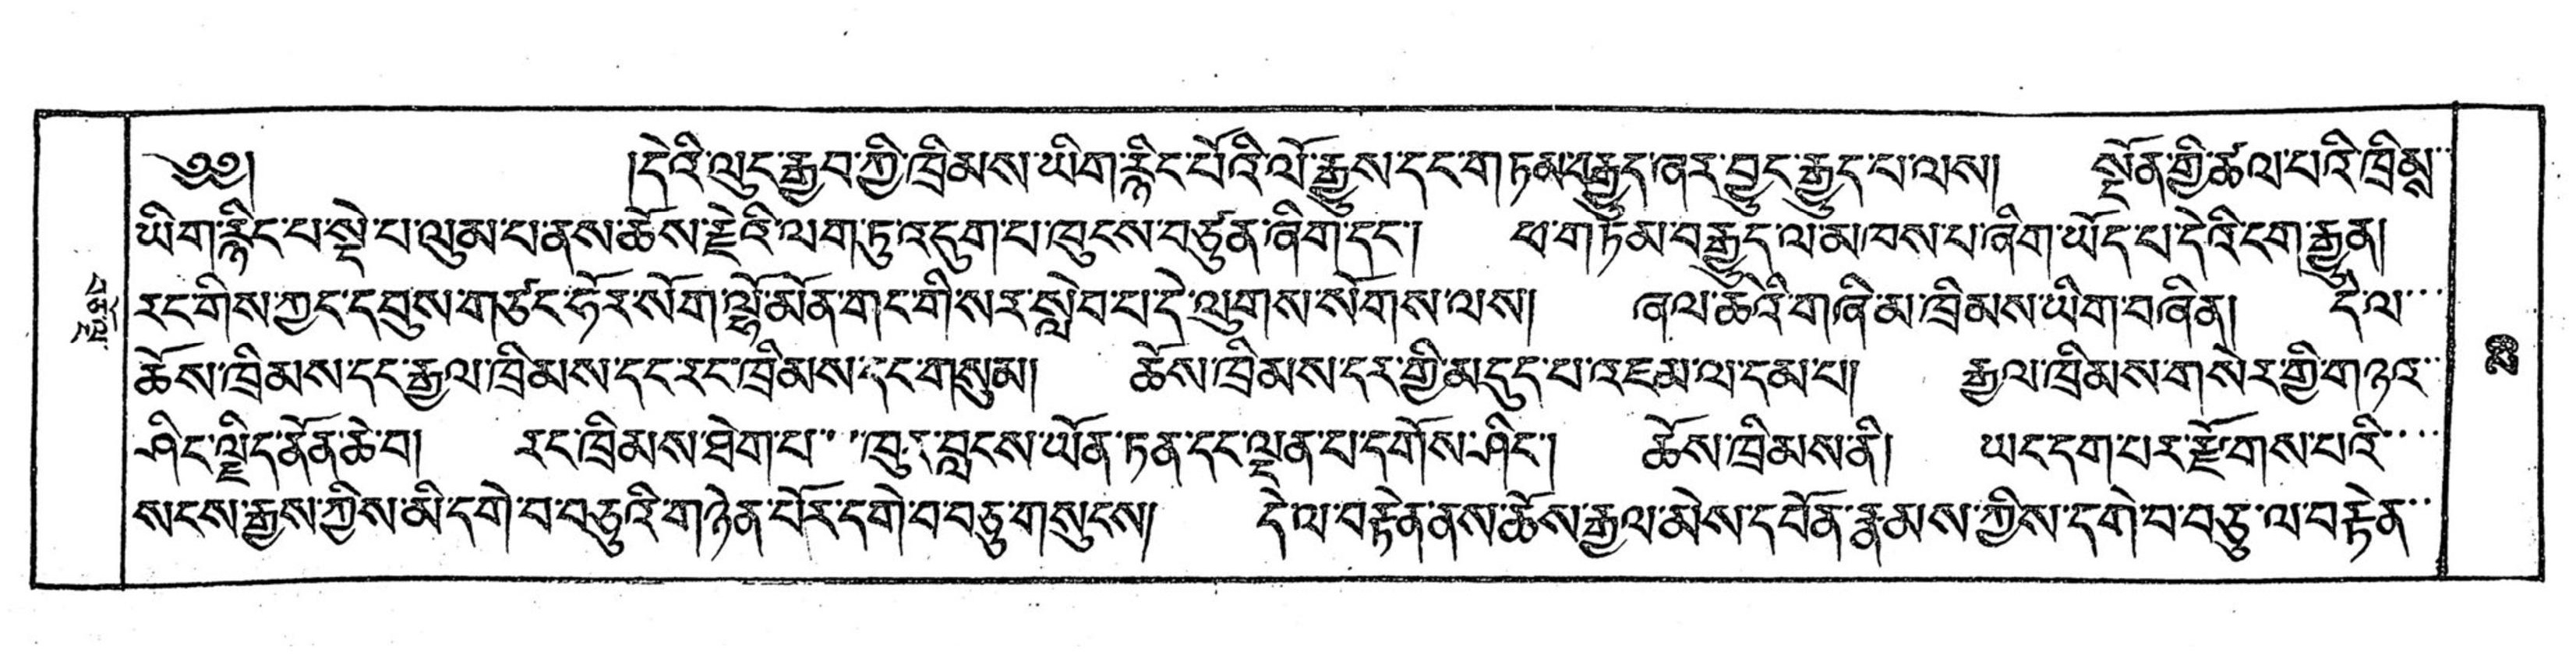 ༄༅། །དེའི་ལུང་རྒྱབ་ཀྱི་ཁྲིམས་ཡིག་རྙིང་པོའི་ལོ་རྒྱུས་དང་གཏམ་རྒྱུད་ཞར་བྱུང་རྒྱུད་པ་ལས། སྔོན་གྱི་ཚལ་པའི་ཁྲིམས
ཡིག་རྙིང་པ་སྡེ་པ་ལུམ་པ་ནས་ཆོས་རྗེའི་ལག་ཏུ་འདུག་པ་ཁུངས་བཙུན་ཞིག་དང་། ཕ་གཏམ་བརྒྱུད་ལ་མཁས་པ་ཞིག་ཡོད་པ་དེའི་ངག་རྒྱུན།
རང་གིས་ཀྱང་དབུས་གཙང་ཧོར་སོག་ལྷོ་མོན་གང་གི་སར་སླེབ་པ་དེ་ལུགས་སོགས་ལས། ཞལ་ཆེའི་གཞི་མ་ཁྲིམས་ཡིག་བཞིན། དེ་ལ
ཆོས་ཁྲིམས་དང་རྒྱལ་ཁྲིམས་དང་རང་ཁྲིམས་དང་གསུམ། ཆོས་ཁྲིམས་དར་གྱི་མདུད་པ་འཇམ་ལ་དམ་པ། རྒྱལ་ཁྲིམས་གསེར་གྱི་གཉའ
ཤིང་ལྗིད་ནོན་ཆེ་བ། རང་ཁྲིམས་ཐེག་པ་ཁུར་བླངས་ཡོན་ཏན་དང་ལྡན་པ་དགོས་ཤིང་། ཆོས་ཁྲིམས་ནི། ཡང་དག་པར་རྫོགས་པའི
སངས་རྒྱས་ཀྱིས་མི་དགེ་བ་བཅུའི་གཉེན་པོར་དགེ་བ་བཅུ་གསུངས། དེ་ལ་བརྟེན་ནས་ཆོས་རྒྱལ་མེས་དབོན་རྣམས་ཀྱིས་དགེ་བ་བཅུ་ལ་བརྟེན